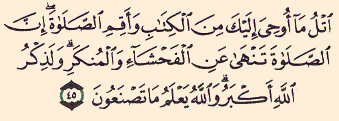 ٱتْلُ مَآ أُوحِىَ إِلَيْكَ مِنَ ٱلْكِتَٰبِ وَأَقِمِ ٱلصَّلَوٰةَۖ إِنَّ
ٱلصَّلَوٰةَ تَنْهَىٰ عَنِ ٱلْفَحْشَآءِ وَٱلْمُنكَرِۗ وَلَذِكْرُ
ٱللَّهِ أَكْبَرُۗ وَٱللَّهُ يَعْلَمُ مَا تَصْنَعُونَ ٤٥